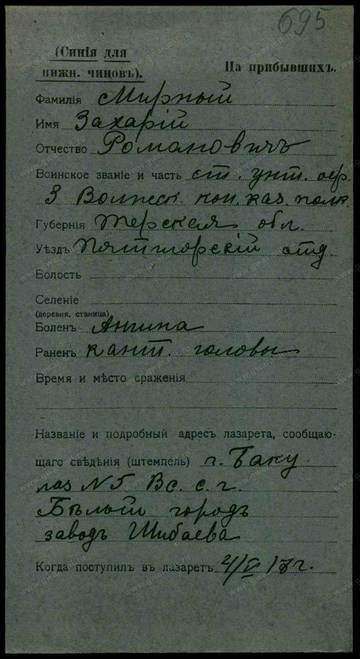 695
(Синія для
нижн. чиновъ).
На прибывшихъ.
Фамилія Мирный
Имя Захарій
Отчество Романовичъ
Воинское званіе и часть ст. унт. офр.
3 кон. каз. полк.
Губернія Терская обл.
Уѣздъ Пятигорскій отд.
Волость
Селеніе
(деревня, станица)
Боленъ Ангина
Раненъ конт. головы
Время и мѣсто сраженія
Названіе и подробный адресъ лазарета, сообщаю-
щаго свѣдѣнія (штемпель) г. Баку
лаз N5 Вс. с. г.
Бѣлый городъ
заводъ Шибаева
Когда поступилъ въ лазаретъ 17 г.